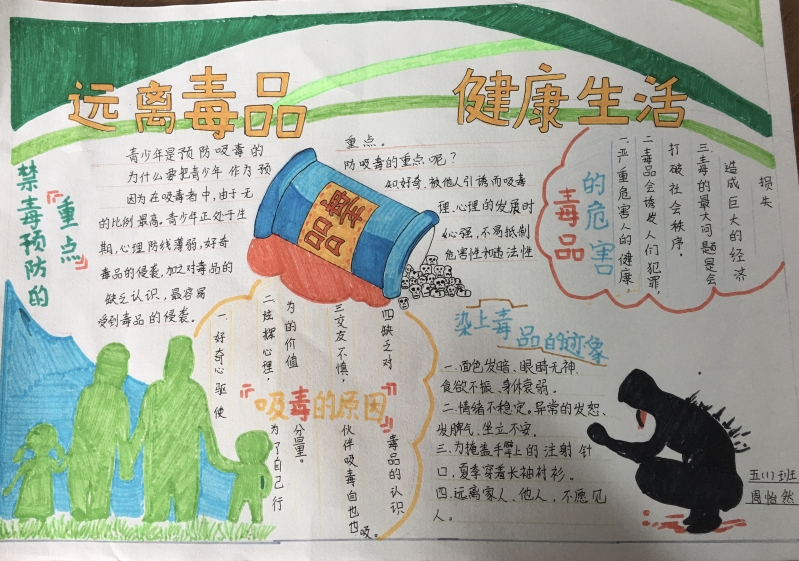 远离毒品
健康生活
禁毒预防的
『重点』
青少年是预防吸毒的
为什么要把青少年作为预
因为在吸毒者中,由于无
的比例最高。青少年正处于生
期,心理防线薄弱,好奇
毒品的侵袭。加之对毒品的
缺乏认识,最容易
受到毒品的侵袭。
重点。
防吸毒的重点呢?
知好奇、被他人引诱而吸毒
理、心理的发展时
心强,不易抵制
危害性和违法性
毒品
毒品
的危害
一.严重危害人的健康,
二毒品会诱发人们犯罪,
打破社会秩序.
三毒的最大问题是会
造成巨大的经济
损失
『吸毒的原因』
一.好奇心驱使
二炫探心理,
为了自己行
为的价值
分量。
三交友不慎,
伙伴吸毒自也也吸。
四缺乏对
毒品的认识
染上毒品的迹像
一.面色发暗、眼睛无神.
食欲不振、身体衰弱。
二.情绪不稳定。异常的发怒、
发脾气、坐立不安。
三、为掩盖手臂上的注射针
口,夏季穿着长袖衬衫。
四.远离家人、他人,不愿见
人。
五(1)班
周怡然